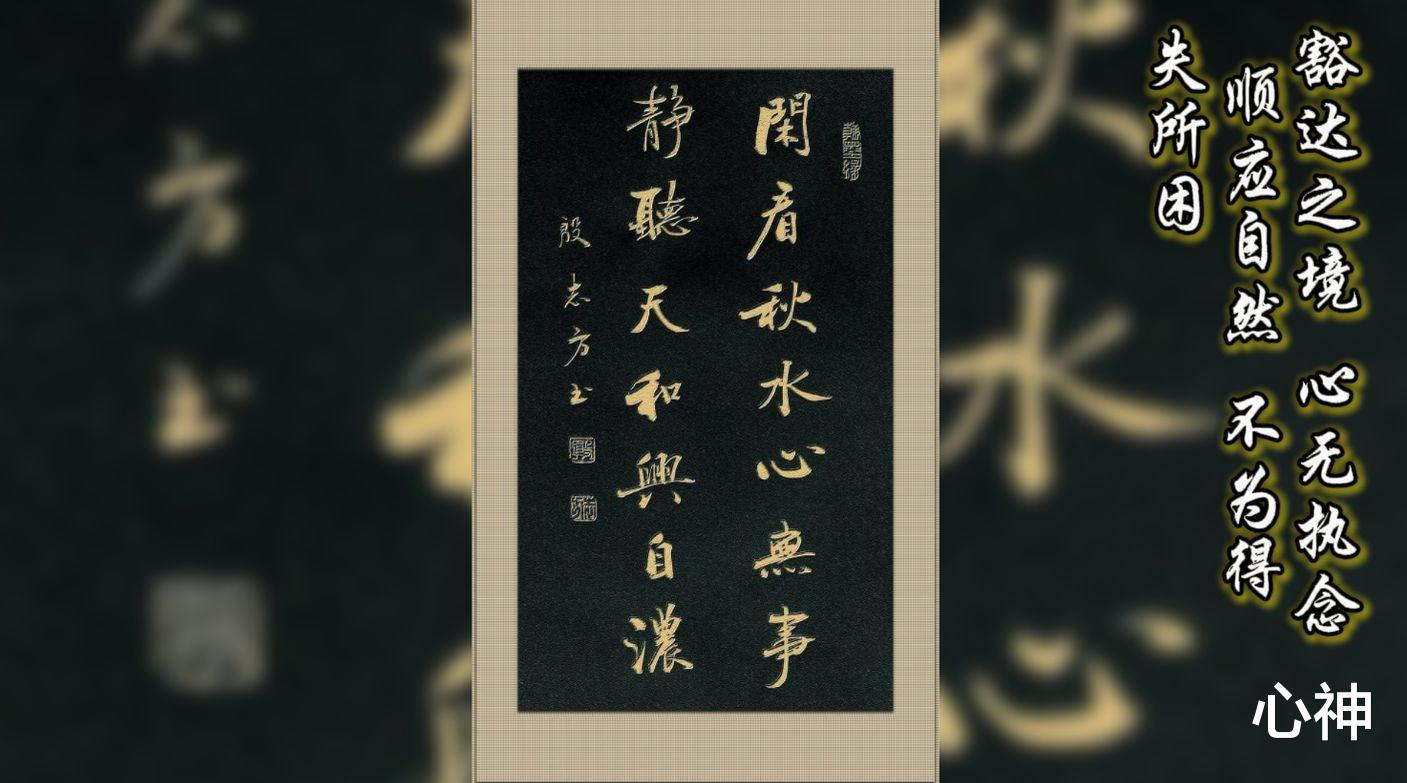 豁达之境 心无执念
顺应自然 不为得
失所困
閑看秋水心無事
静聽天和興自濃
殷志方书
心神